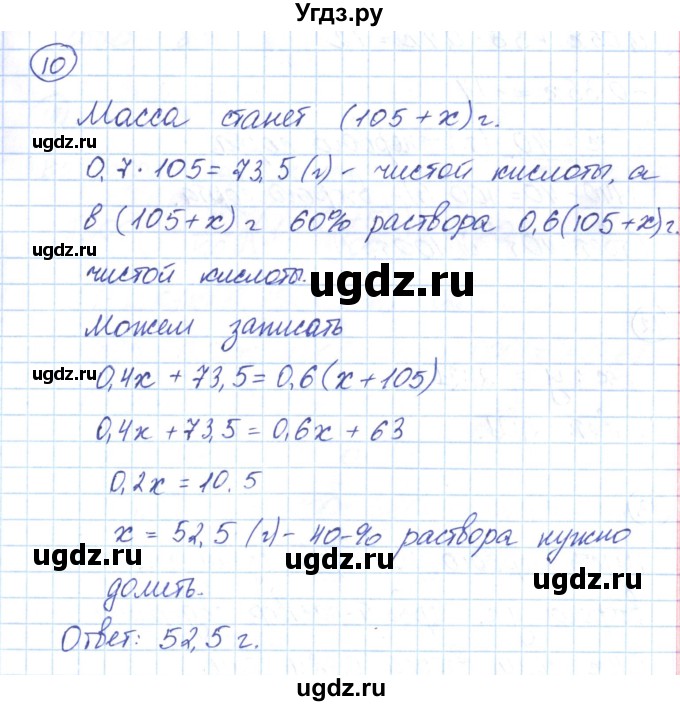 Угдз.ру
10
Масса станет (105+x) г.
ugdz.ru ugdz.ru
0,7·105=73,5 (г) - чистой кислоты, а
в (105+x) г 60% раствора 0,6(105+x) г.
ugdz.ru ugdz.ru
чистой кислоты.
ugdz.ru
Можем записать
ugdz.ru
0,4x + 73,5=0,6(x+105)
ugdz.ru
0,4x+73,5=0,6x+63
0,2x=10.5
x = 52,5 (г) - 40-% раствора нужно
ugdz.ru ugdz.ru ugdz.ru
долить.
Ответ: 52,5 г.
ugdz.ru
ugdz.ru